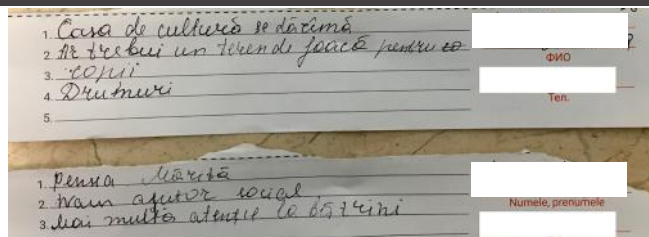 1. Casa de cultură se dărîmă
2. Ar trebui un teren de joacă pentru
3. copii
4. Drumuri
5.
ФИО
Тел.
1. Pensia Mărită
2. N-am ajutor social
3. Mai multă atenție la bătrîni
Numele, prenumele